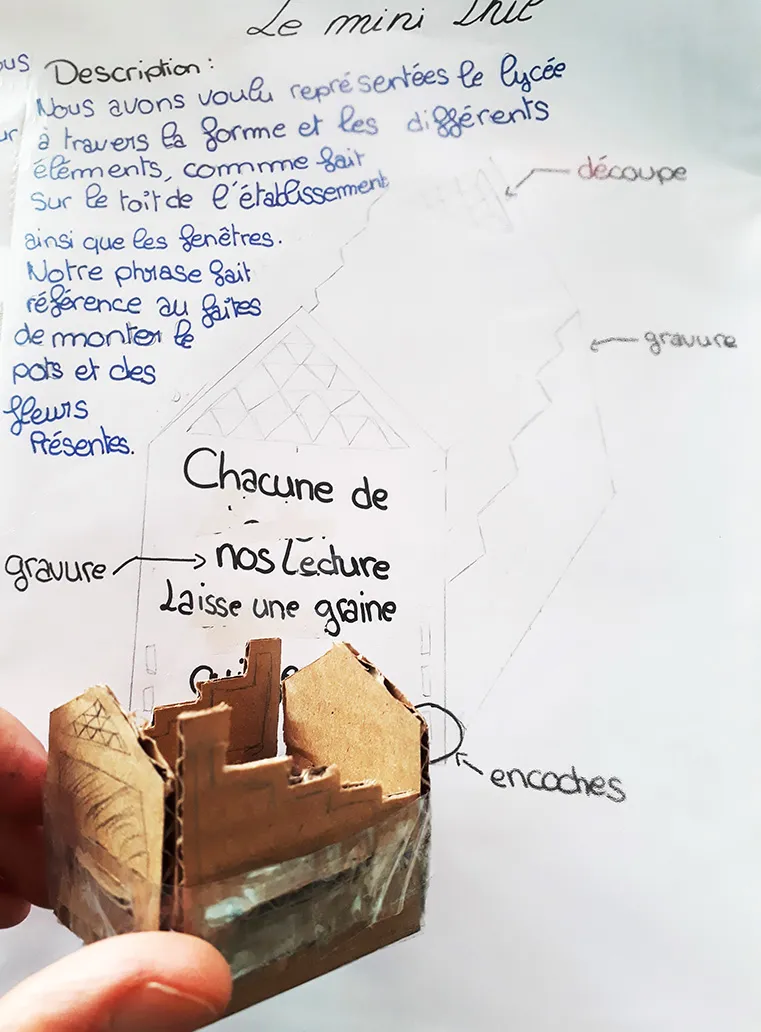 Le mini
Description :
Nous avons voulu représentées le lycée
à travers la forme et les différents
éléments, commme fait
Sur le toit de l'établissement
ainsi que les fenêtres.
Notre phrase fait
référence au faites
de monter le
pots et des
fleurs
Présentes.
découpe
gravure
Chacune de
gravure
nos Lecture
Laisse une graine
encoches